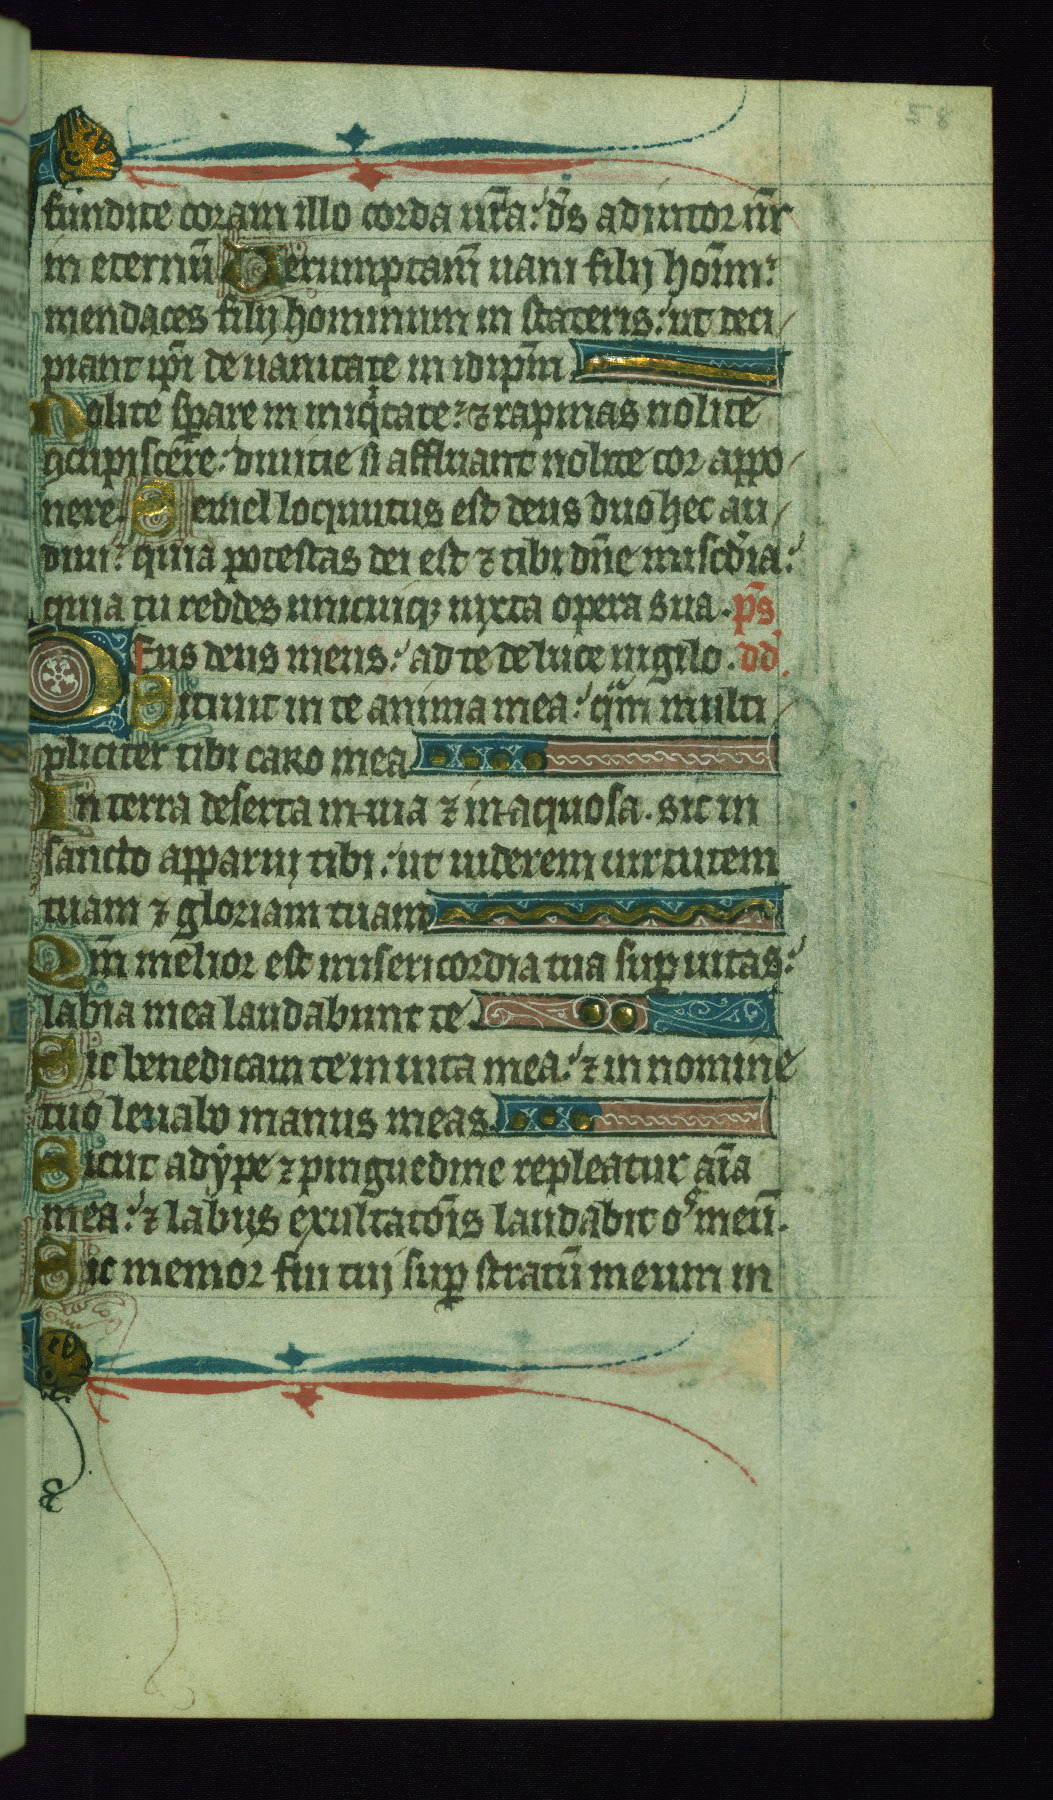 58
fundite coram illo corda ur̄a: ds̄ adiutor nr̄
in eternū Uerumptam̄ uani filij hoim̄:
mendaces filij hominum in stateris: ut deci
piant ip̄i de uanitate in idip̄m
Nolite sp̄are in iniq̇tate: ⁊ rapinas nolite
ꝯcupiscere: diuitie si affluant nolite cor appo
nere. Semel loquutus est deus duo hec au
diui: quia potestas dei est ⁊ tibi dn̄e misc̄dia:
quia tu reddes unicuiqꝫ iuxta opera sua. ps̄
Deus deus meus: ad te de luce uigilo. dd̄.
Sitiuit in te anima mea: qm̄ multi
pliciter tibi caro mea
In terra deserta in uia ⁊ in aquosa. sic in
sancto apparuj tibi: ut uiderem uirtutem
tuam ⁊ gloriam tuam
Qm̄ melior est misericordia tua sup̄ uitas:
labia mea laudabunt te
Sic benedicam te in uita mea: ⁊ in nomine
tuo leuabo manus meas.
Sicut adype ⁊ pinguedine repleatur aīa
mea: ⁊ labijs exultatōis laudabit os meū.
Sic memor fui tuj sup̄ stratū meum in